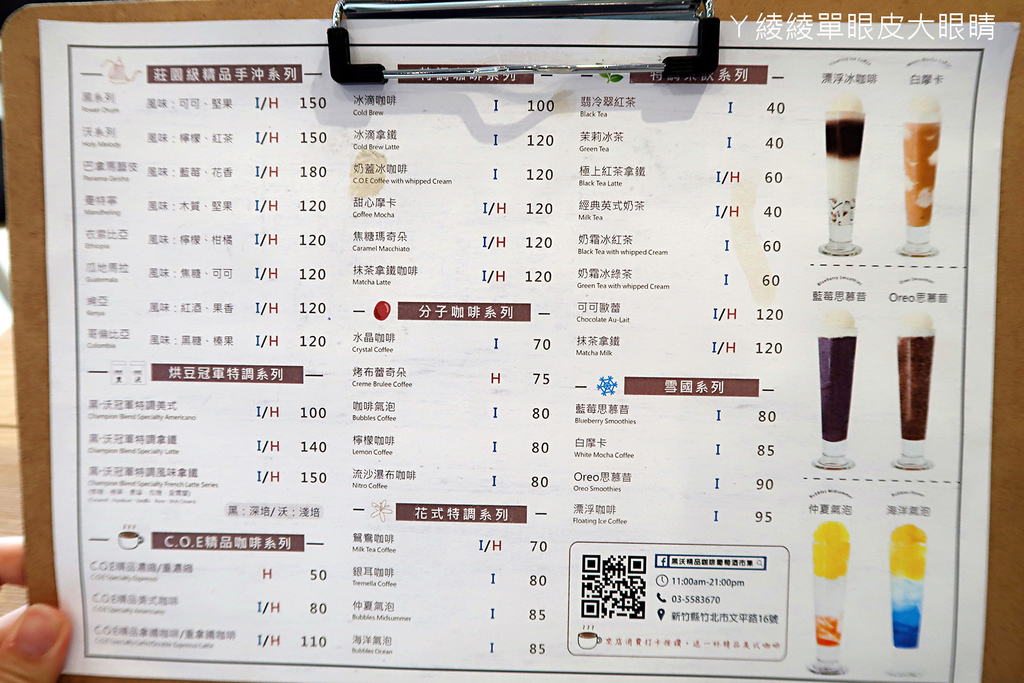 ㄚ綾綾單眼皮大眼睛
莊園級精品手沖系列
黑系列 風味：可可、堅果 I/H 150
Power Drum
沃系列 風味：檸檬、紅茶 I/H 150
Holy Melody
巴拿馬藝伎 風味：藍莓、花香 I/H 180
Panama Geisha
曼特寧 風味：木質、堅果 I/H 120
Mandheling
衣索比亞 風味：檸檬、柑橘 I/H 120
Ethiopia
瓜地馬拉 風味：焦糖、可可 I/H 120
Guatemala
肯亞 風味：紅酒、果香 I/H 120
Kenya
哥倫比亞 風味：黑糖、榛果 I/H 120
Colombia
烘豆冠軍特調系列
黑·沃冠軍特調美式 I/H 100
Champion Blend Specialty Americano
黑·沃冠軍特調拿鐵 I/H 140
Champion Blend Specialty Latte
黑·沃冠軍特調風味拿鐵 I/H 150
Champion Blend Specialty French Latte Series
黑：深焙/沃：淺焙
C.O.E精品咖啡系列
C.O.E精品濃縮/重濃縮 H 50
C.O.E Specialty Espresso
C.O.E精品美式咖啡 I/H 80
C.O.E Specialty Americano
C.O.E精品拿鐵咖啡/重拿鐵咖啡 I/H 110
C.O.E Specialty Latte/Double Espresso Latte
特調咖啡系列
冰滴咖啡 I 100
Cold Brew
冰滴拿鐵 I 120
Cold Brew Latte
奶蓋冰咖啡 I 120
C.O.E Coffee with whipped Cream
甜心摩卡 I/H 120
Coffee Mocha
焦糖瑪奇朵 I/H 120
Caramel Macchiato
抹茶拿鐵咖啡 I/H 120
Matcha Latte
分子咖啡系列
水晶咖啡 I 70
Crystal Coffee
烤布蕾奇朵 H 75
Creme Brulee Coffee
咖啡氣泡 I 80
Bubbles Coffee
檸檬咖啡 I 80
Lemon Coffee
流沙瀑布咖啡 I 80
Nitro Coffee
花式特調系列
鴛鴦咖啡 I/H 70
Milk Tea Coffee
銀耳咖啡 I 80
Tremella Coffee
仲夏氣泡 I 85
Bubbles Midsummer
海洋氣泡 I 85
Bubbles Ocean
特調茶飲系列
翡冷翠紅茶 I 40
Black Tea
茉莉冰茶 I 40
Green Tea
極上紅茶拿鐵 I/H 60
Black Tea Latte
經典英式奶茶 I/H 40
Milk Tea
奶霜冰紅茶 I 60
Black Tea with whipped Cream
奶霜冰綠茶 I 60
Green Tea with whipped Cream
可可歐蕾 I/H 120
Chocolate Au-Lait
抹茶拿鐵 I/H 120
Matcha Milk
雪國系列
藍莓思慕昔 I 80
Blueberry Smoothies
白摩卡 I 85
White Mocha Coffee
Oreo思慕昔 I 90
Oreo Smoothies
漂浮咖啡 I 95
Floating Ice Coffee
黑沃精品咖啡葡萄酒市集
11:00am-21:00pm
03-5583670
新竹縣竹北市文平路16號
來店消費打卡按讚，送一杯精品美式咖啡
漂浮冰咖啡 白摩卡
Blueberry Smoothies
藍莓思慕昔 Oreo思慕昔
Bubbles Midsummer Bubbles Ocean
仲夏氣泡 海洋氣泡